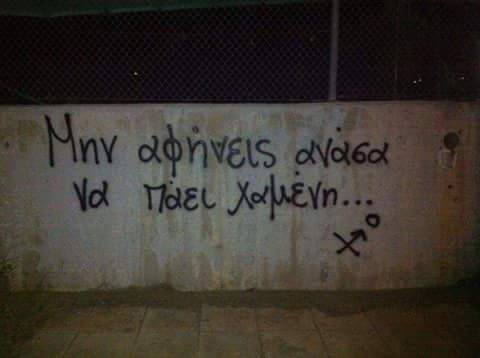 Μην αφήνεις ανάσα
να πάει χαμένη...